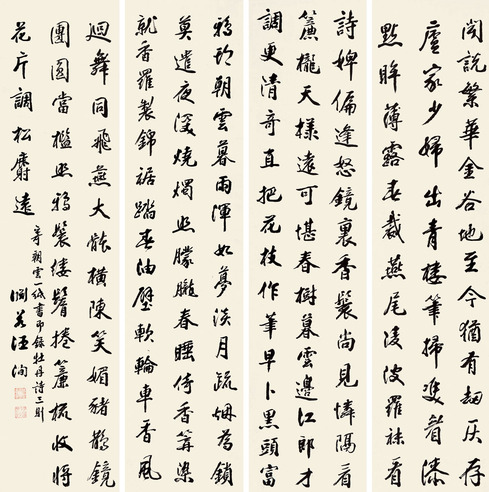 聞說繁華金谷地至今猶有劫灰存
盧家少婦出青樓筆掃雙眉漆
點眸薄露春裁燕尾淩波羅袜看
詩婢偏逢怒鏡裏香鬟尚見憐隔看
簾櫳天樣遠可堪春樹暮雲邊江郎才
調更清奇直把花枝作筆早卜黑頭富
鴉朝雲暮雨渾如夢淡月疏烟為鎖
莫遣夜深燒燭照朦朧春睡倚香篝染
就香羅製錦裾踏春油壁軟輪車香風
迴舞同飛燕大體橫陳笑媚豬鸚鏡
團圓當檻照鴉鬟縷髻捲簾梳收將
花片調松麝遠
寄朝雲一紙書 節錄牡丹詩三則
淵若汪洵